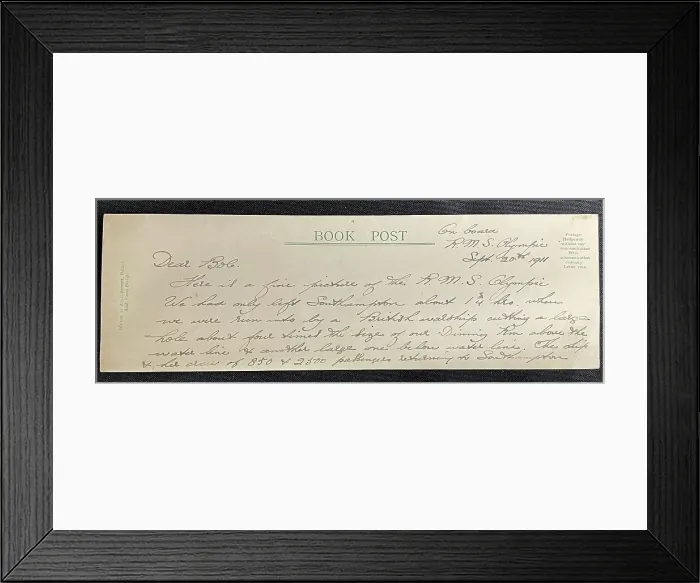 BOOK POST
On board
R.M.S. Olympic
Sept. 20th 1911
Dear Bob
Here is a fine picture of the R.M.S. Olympic
We had only left Southampton about 1¾ hrs. when
we were run into by a British warship cutting a large
hole about four times the size of our Dining Rm above the
water line & another large one below water line. The ship
& her crew of 850 & 2500 passengers returning to Southampton